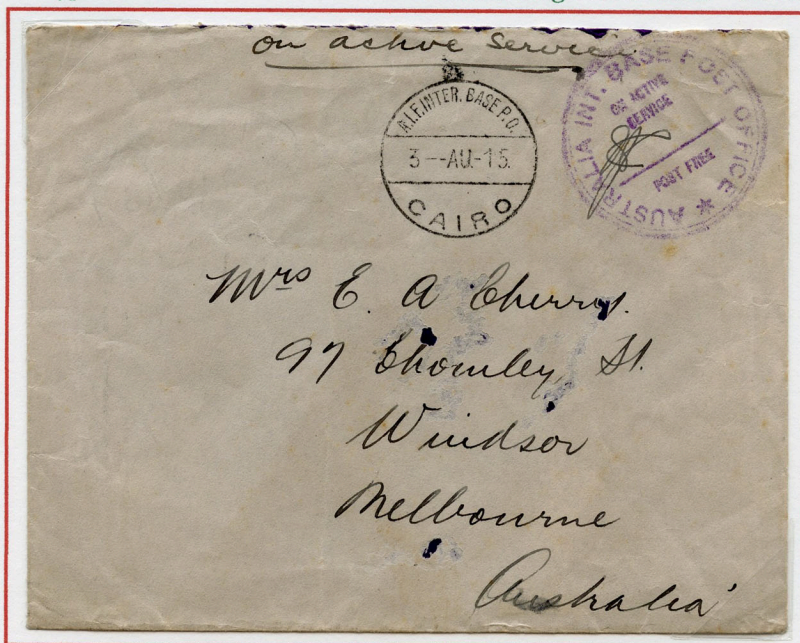 on active Service
A.I.F. INTER. BASE P.O.
3--AU.-15.
CAIRO
AUSTRALIA INT. BASE POST OFFICE *
ON ACTIVE
SERVICE
POST FREE
Mrs E. A Cherry.
97 Chomley, St.
Windsor
Melbourne
Australia